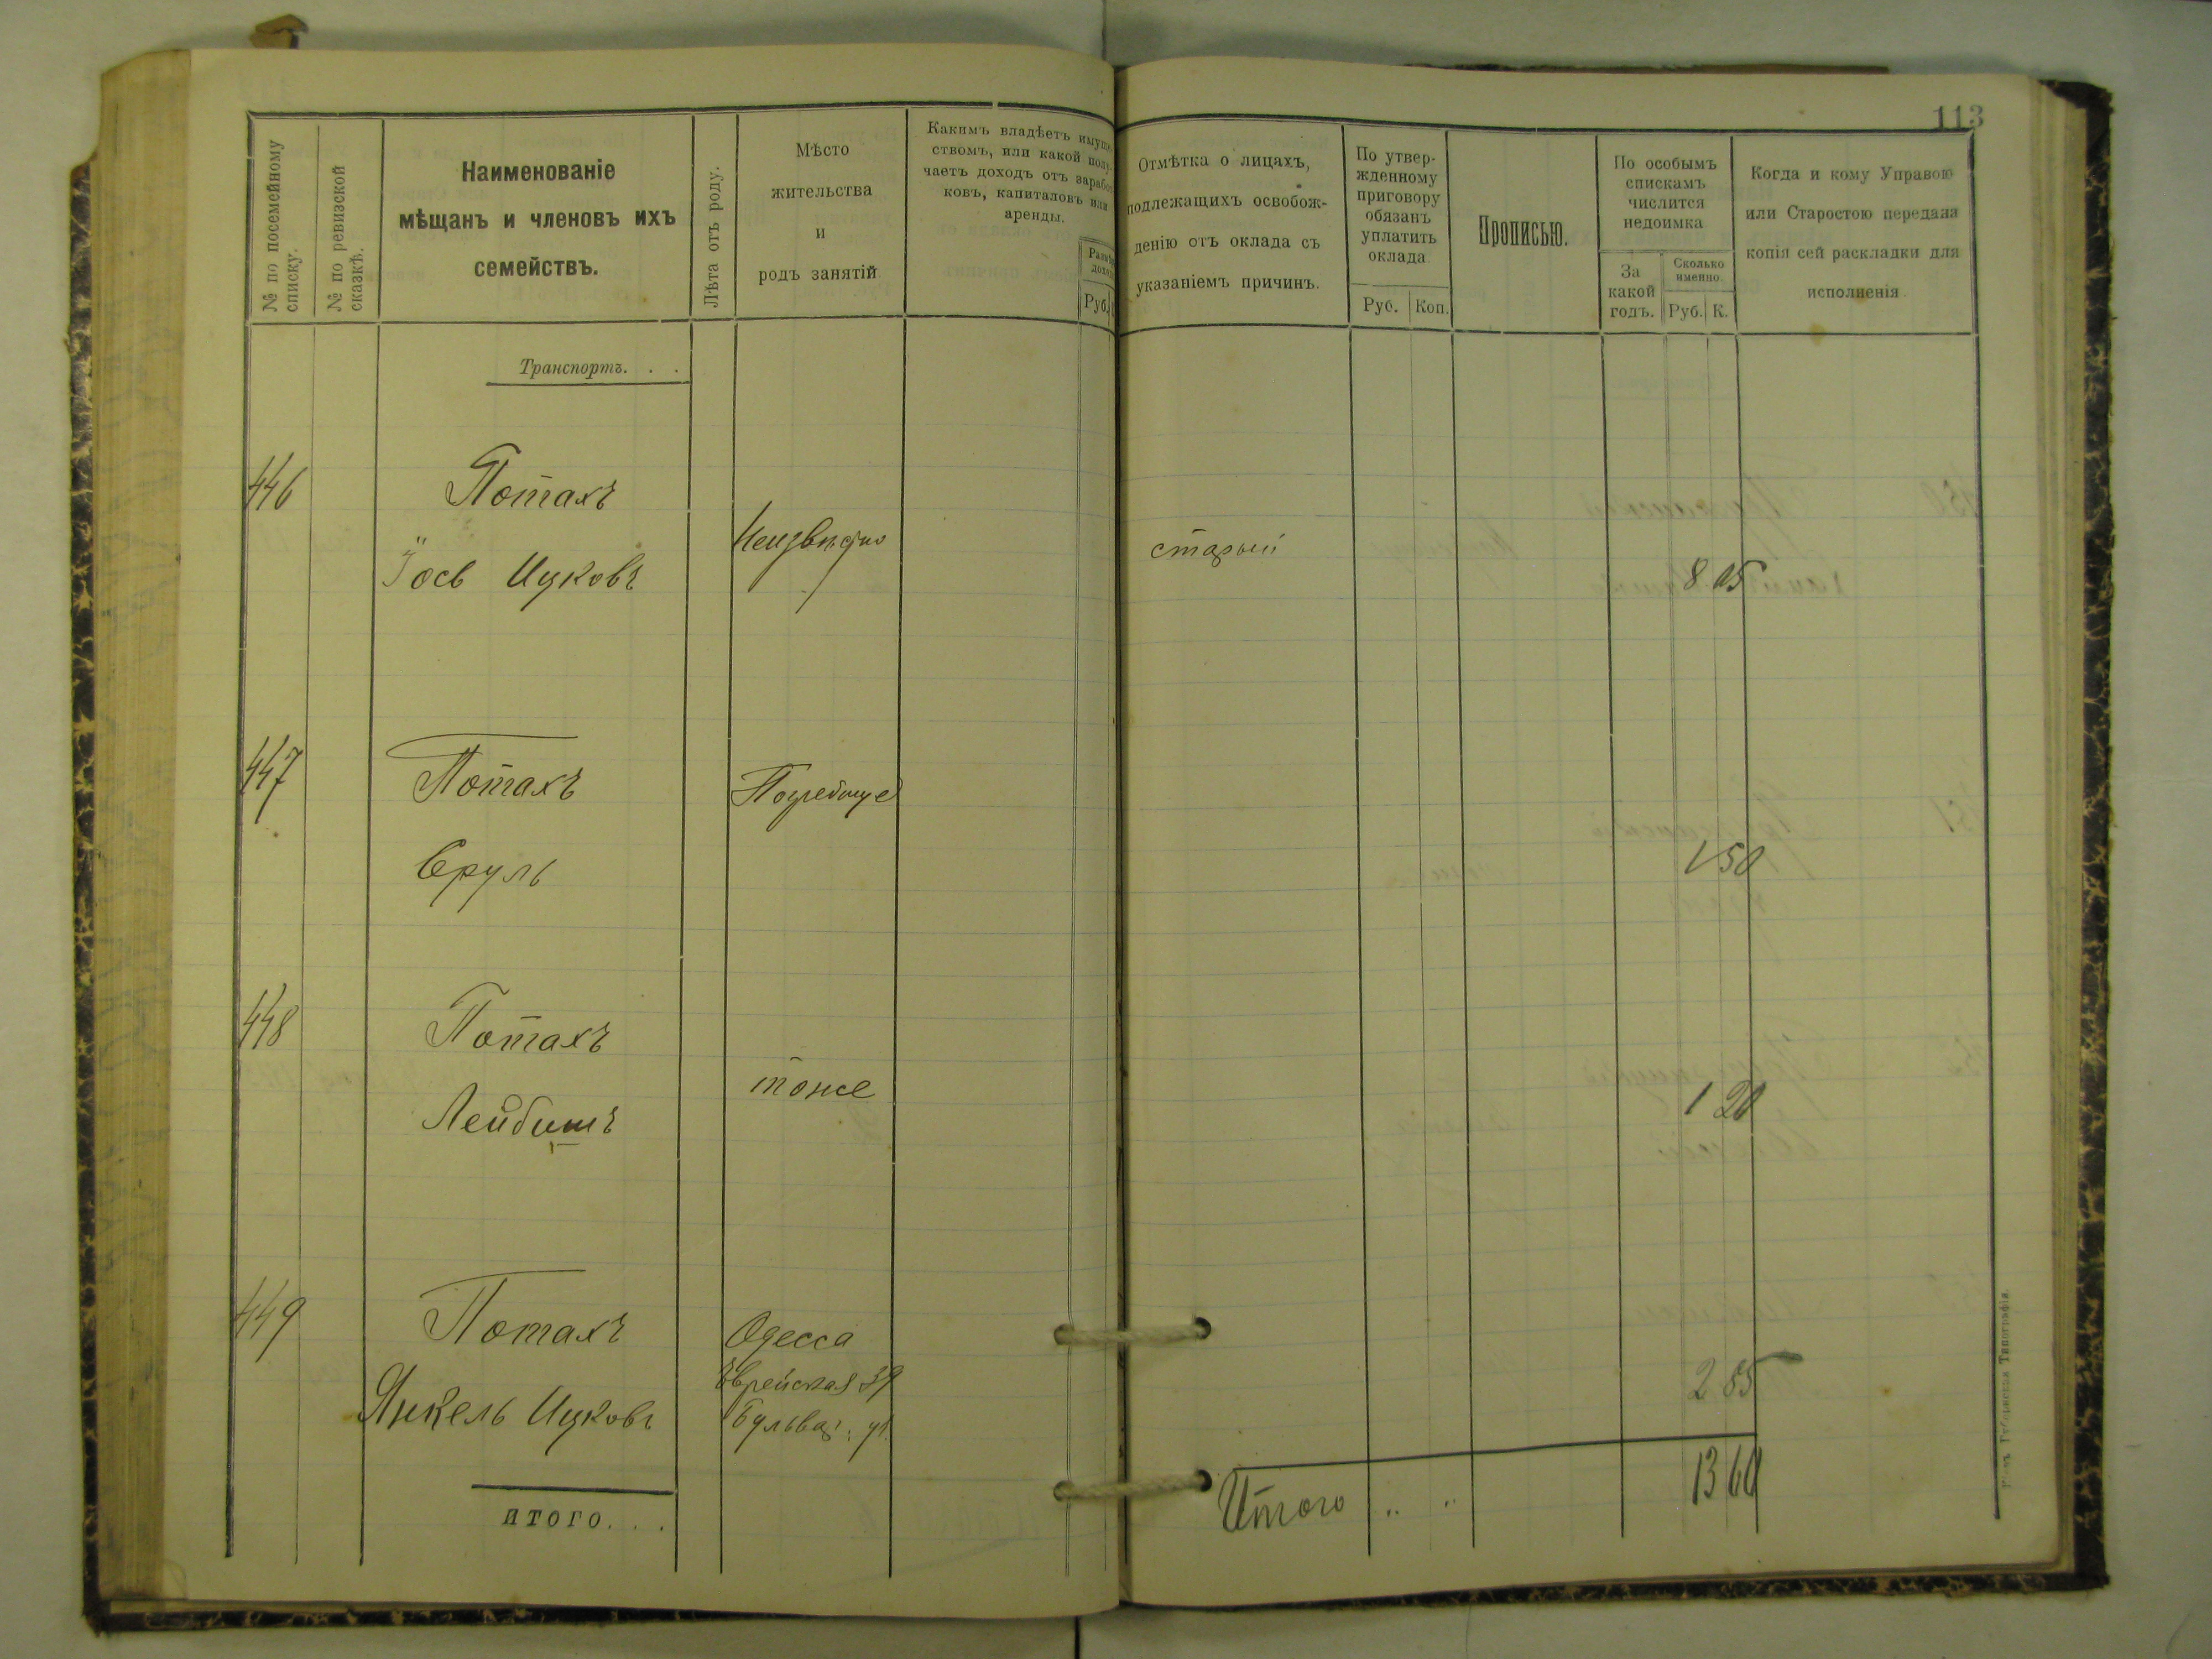 113
№ по посемейному списку.
№ по ревизской сказкѣ.
Наименованіе
мѣщанъ и членовъ ихъ
семействъ.
Лѣта отъ роду.
Мѣсто
жительства
и
родъ занятій
Какимъ владѣетъ имуще-
ствомъ, или какой полу-
чаетъ доходъ отъ заработ-
ковъ, капиталовъ или
аренды.
Руб.
Отмѣтка о лицахъ,
подлежащихъ освобож-
денію отъ оклада съ
указаніемъ причинъ.
По утвер-
жденному
приговору
обязанъ
уплатить
оклада
Руб. Коп.
Прописью.
По особымъ
спискамъ
числится
недоимка
За
какой
годъ.
Сколько
именно.
Руб. К.
Когда и кому Управою
или Старостою передана
копія сей раскладки для
исполненія.
Транспортъ. . .
446 Потахъ
Іось Ицковъ Неизвѣстно старый 8 05
447 Потахъ Погребище
Сруль 1 50
448 Потахъ
тоже 1 20
Лейбишъ
449 Потахъ Одесса
Еврейская 39 2 85
Янкель Ицковъ Бульвар: уг.
итого. . .
Итого " " 13 60
Губернская Типографія.